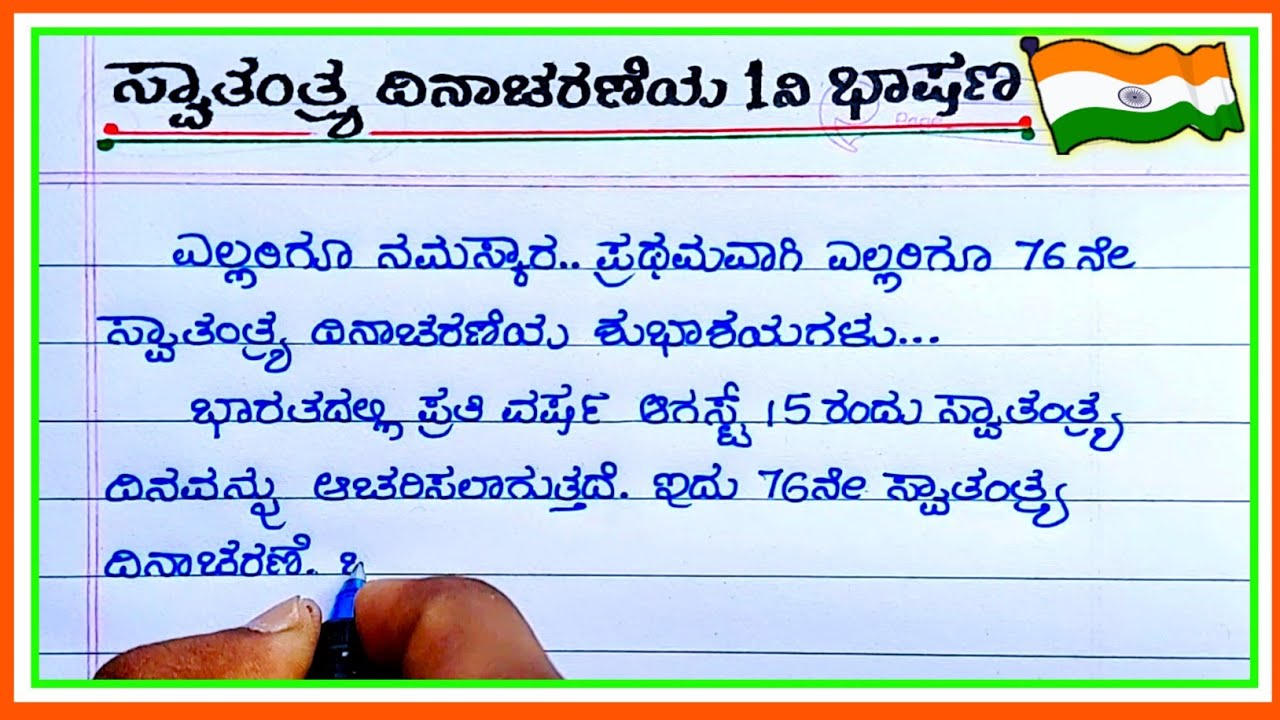 ಸ್ವಾತಂತ್ರ್ಯ ದಿನಾಚರಣೆಯ 1ನಿ ಭಾಷಣ
ಎಲ್ಲರಿಗೂ ನಮಸ್ಕಾರ.. ಪ್ರಥಮವಾಗಿ ಎಲ್ಲರಿಗೂ 76ನೇ
ಸ್ವಾತಂತ್ರ್ಯ ದಿನಾಚರಣೆಯ ಶುಭಾಶಯಗಳು...
ಭಾರತದಲ್ಲಿ ಪ್ರತಿ ವರ್ಷ ಆಗಸ್ಟ್ 15ರಂದು ಸ್ವಾತಂತ್ರ್ಯ
ದಿನವನ್ನು ಆಚರಿಸಲಾಗುತ್ತದೆ. ಇದು 76ನೇ ಸ್ವಾತಂತ್ರ್ಯ
ದಿನಾಚರಣೆ.